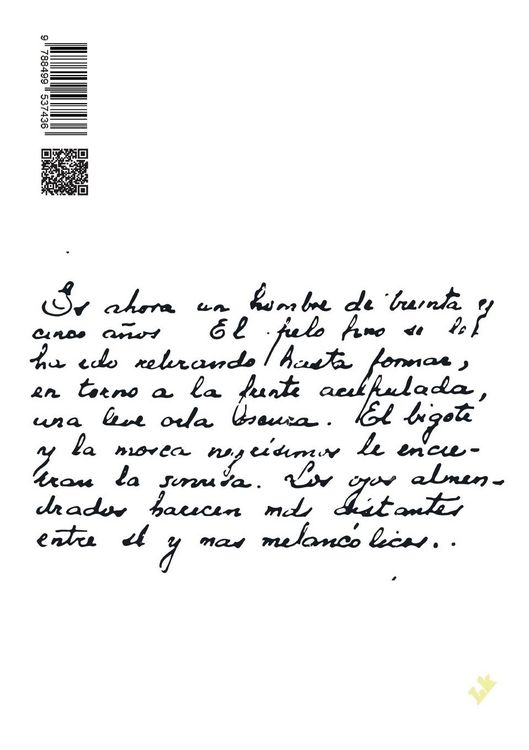 9 788499 537436
Es ahora un hombre de treinta y
cinco años El pelo fino se le
ha ido retirando hasta formar,
en torno a la frente acupulada,
una leve orla oscura. El bigote
y la mosca negrísimos le encie-
rran la sonrisa. Los ojos almen-
drados parecen más distantes
entre sí y mas melancólicos..
Lk